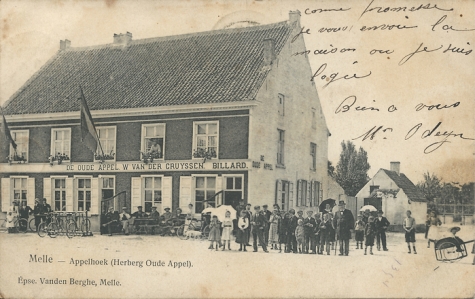 comme promesse
je vous envoie la
maison ou je suis
logée
Bien a vous
DE OUDE APPEL W VAN DER CRUYSSEN BILLARD.
Melle — Appelhoek (Herberg Oude Appel).
Épse. Vanden Berghe, Melle.